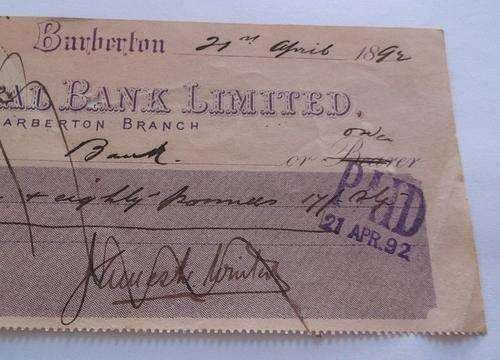 Barberton 21st April 1892
AL BANK LIMITED,
ARBERTON BRANCH
Bank. or Bearer
& eighty Pounds 17/
PAID
21 APR.92